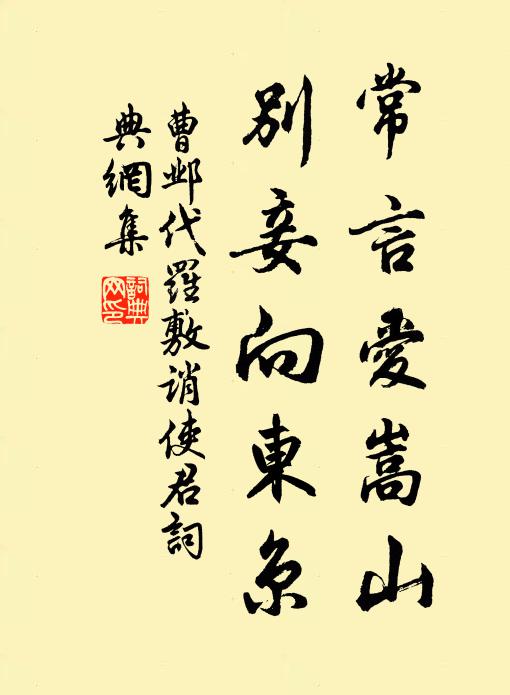 常言愛嵩山
別妾向東京
曹邺代羅敷誚使君詞
典網集
詞典网印